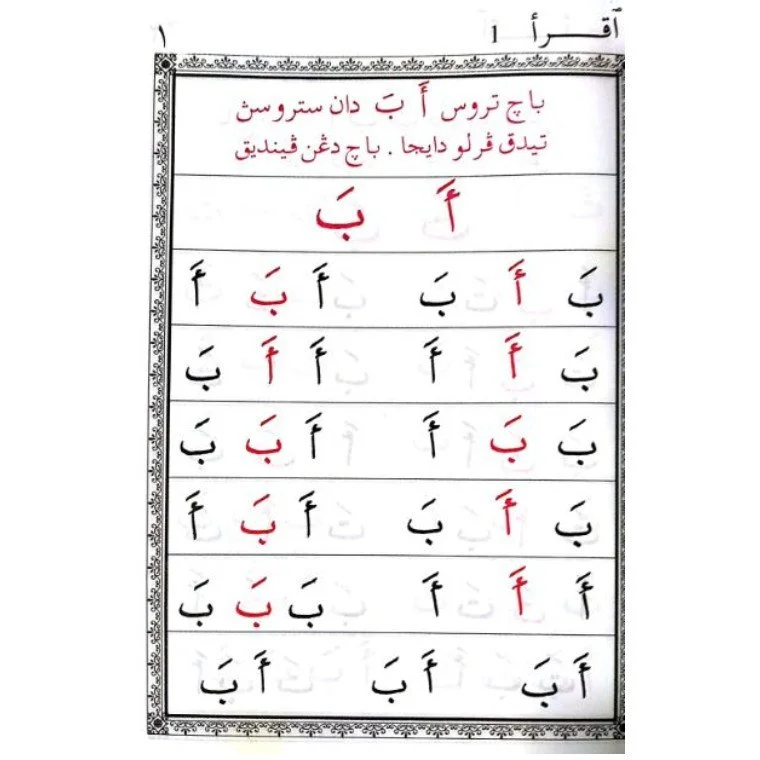 اقرأ 1 ١
باچ تروس أَ بَ دان ستروسڽ
تيدق ڤرلو دايجا . باچ دڠن ڤينديق
أَ بَ
بَ أَ بَ أَ بَ أَ
بَ أَ أَ أَ أَ بَ
بَ بَ أَ أَ بَ بَ
بَ أَ بَ أَ بَ أَ
أَ أَ أَ بَ بَ بَ
أَ بَ أَ بَ أَ بَ